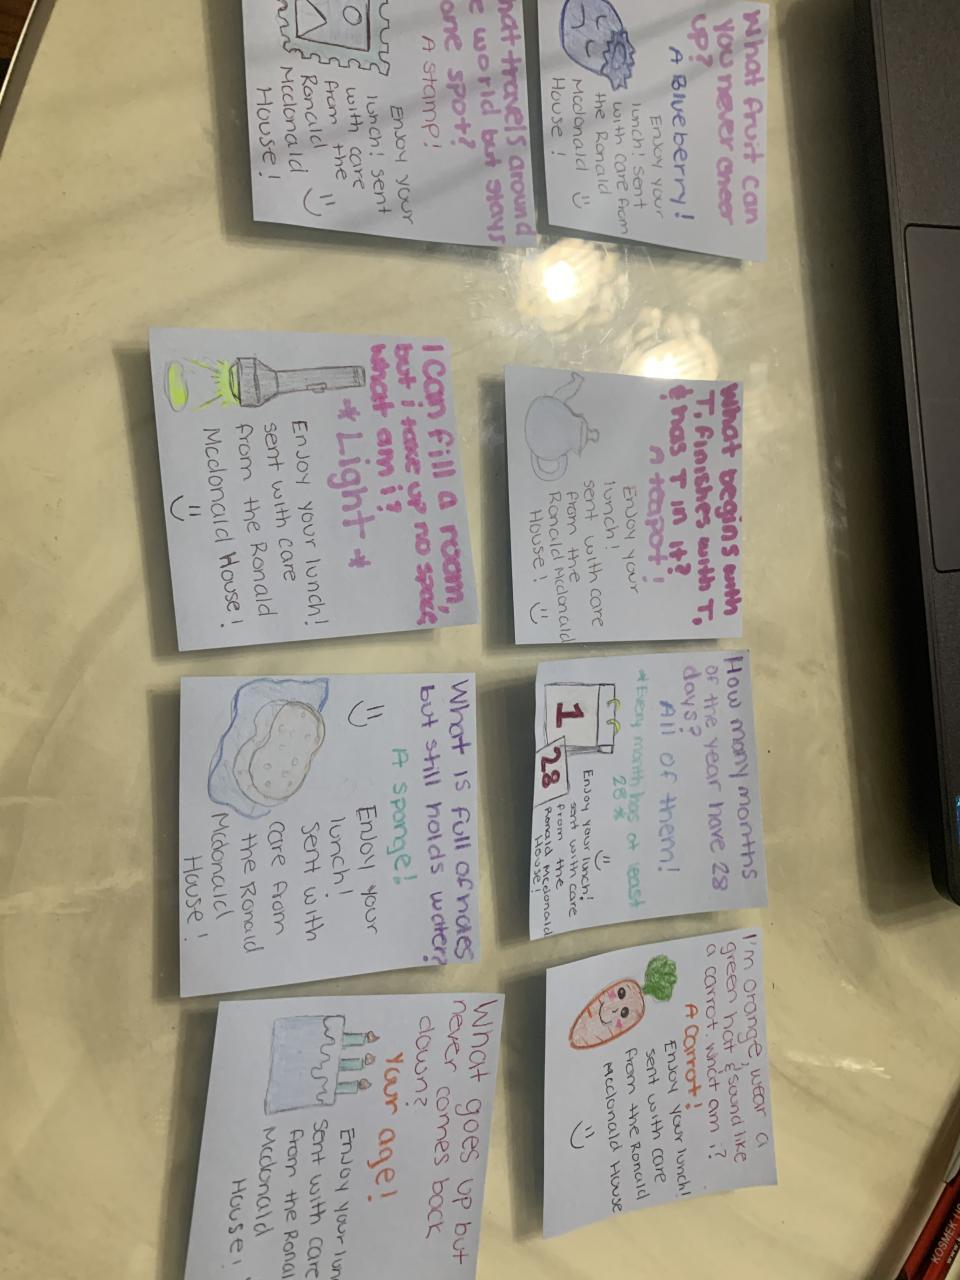 What fruit can
you never cheer
up?
A Blueberry!
Enjoy your
lunch! sent
with care from
the Ronald
Mcdonald
House!
hat travels around
e world but stays
one spot?
A stamp!
Enjoy your
lunch! sent
with care
from the
Ronald
Mcdonald
House!
What begins with
T, finishes with T,
& has T in it?
A teapot!
Enjoy your
lunch!
sent with care
from the
Ronald Mcdonald
House!
I can fill a room,
but i take up no space,
what am i?
*Light*
Enjoy your lunch!
sent with care
from the Ronald
Mcdonald House!
How many months
of the year have 28
days?
All of them!
*Every month has at least
28*
1
28
Enjoy your lunch!
sent with care
from the
Ronald Mcdonald
House!
What is full of holes
but still holds water?
A sponge!
Enjoy your
lunch!
sent with
care from
the Ronald
Mcdonald
House!
I'm orange, wear a
green hat & sound like
a carrot. what am i?
A carrot!
Enjoy your lunch!
sent with care
from the Ronald
Mcdonald House
What goes up but
never comes back
down?
your age!
Enjoy your lun
sent with care
from the Ronal
Mcdonald
House!
KOSMEK US